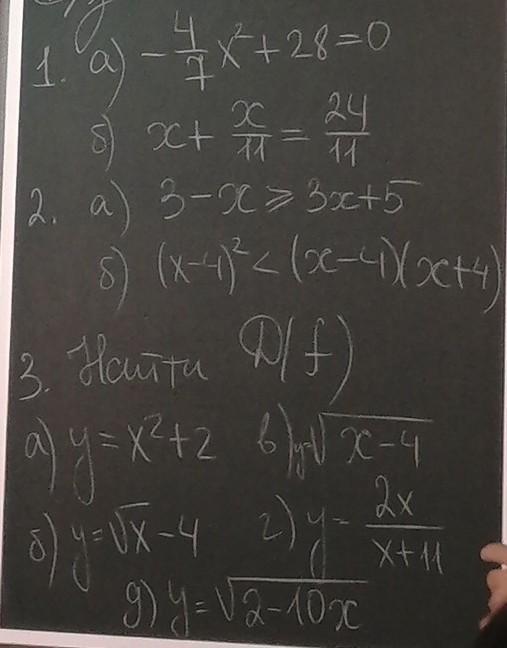 1. а) -4/7 x² + 28 = 0
б) x + x/11 = 24/11
2. а) 3 - x ⩾ 3x + 5
б) (x-4)² < (x-4)(x+4)
3. Найти D(f)
а) y = x² + 2 в) y = √(x-4)
б) y = √x - 4 г) y = 2x/(x+11)
д) y = √(2-10x)